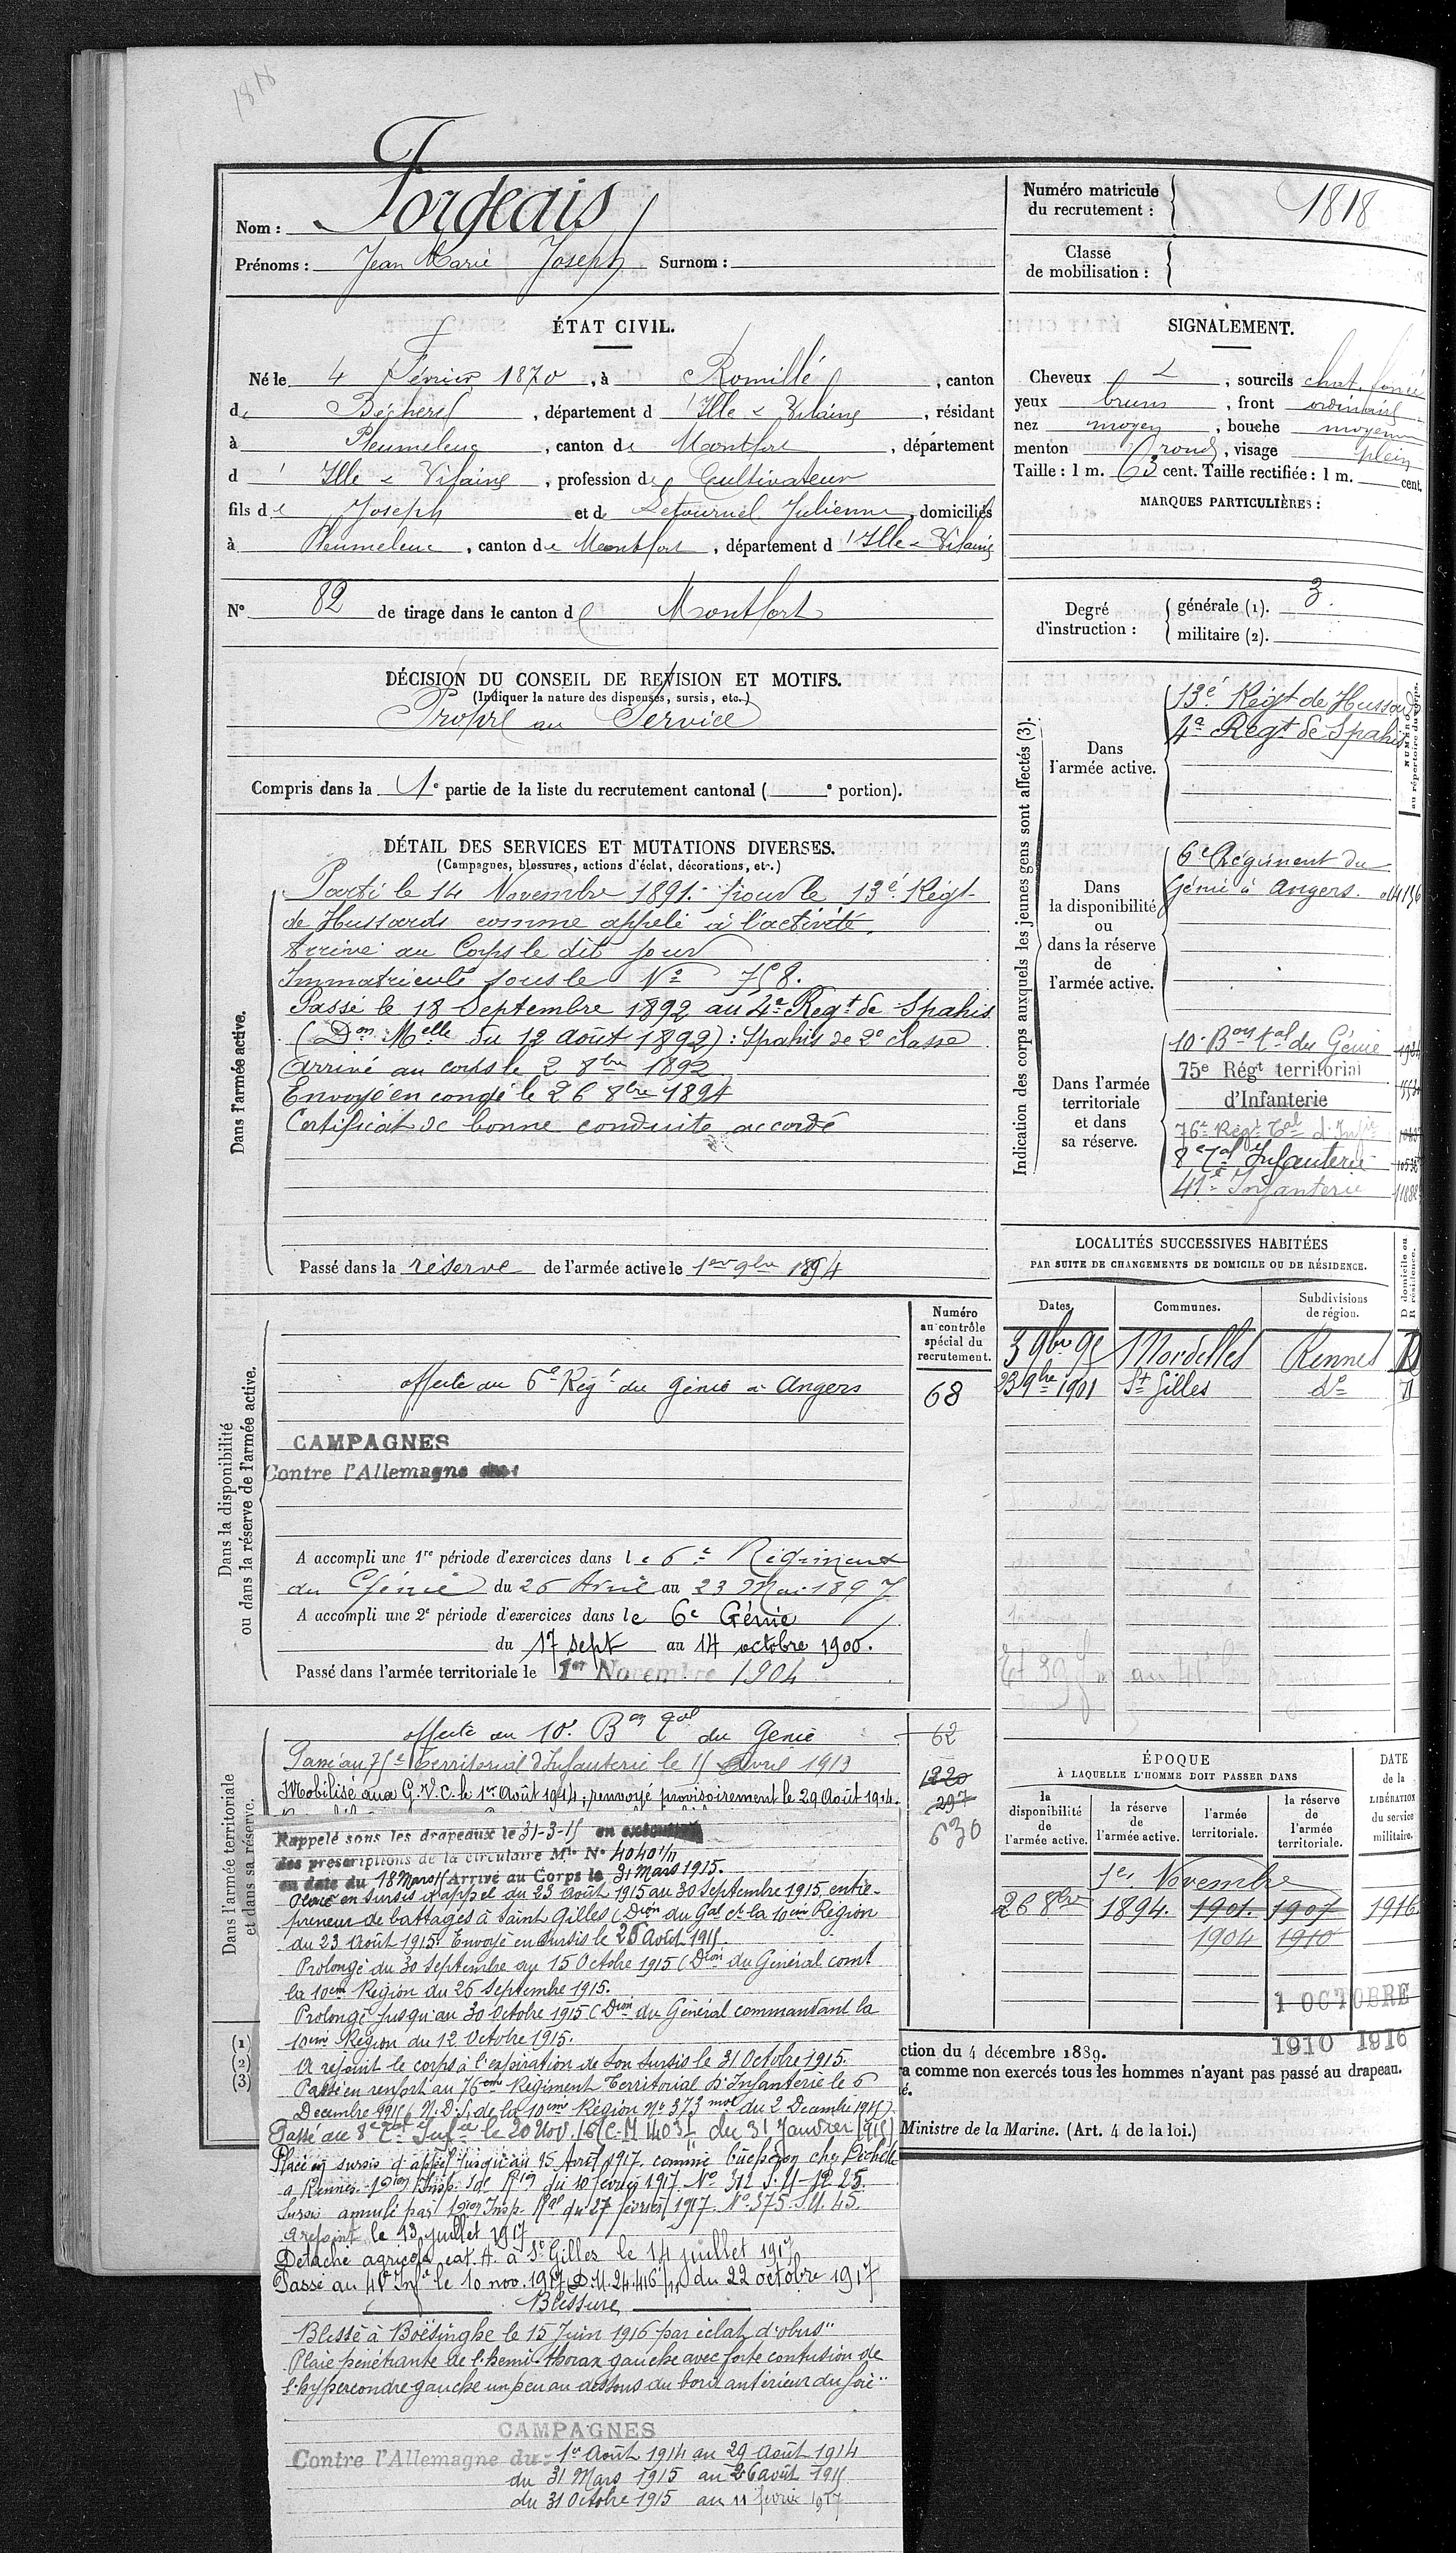 1818
Nom : Fordeais
Numéro matricule du recrutement : 1818
Prénoms : Jean Marie Joseph Surnom :
Classe de mobilisation :
ÉTAT CIVIL.
Né le 4 Février 1870, à Romillé, canton
de Bécherel, département d'Ille & Vilaine, résidant
à Pleumeleuc, canton de Montfort, département
d'Ille & Vilaine, profession de Cultivateur
fils de Joseph et de Letournel Julienne, domiciliés
à Pleumeleuc, canton de Montfort, département d'Ille & Vilaine
N° 82 de tirage dans le canton de Montfort
SIGNALEMENT.
Cheveux, sourcils chat. foncé
yeux bruns, front ordinaire
nez moyen, bouche moyenne
menton rond, visage plein
Taille : 1 m. 63 cent. Taille rectifiée : 1 m. cent.
MARQUES PARTICULIÈRES :
Degré d'instruction : générale (1). 3.
militaire (2).
DÉCISION DU CONSEIL DE REVISION ET MOTIFS.
(Indiquer la nature des dispenses, sursis, etc.)
Propre au Service
Compris dans la 1e partie de la liste du recrutement cantonal ( e portion).
DÉTAIL DES SERVICES ET MUTATIONS DIVERSES.
(Campagnes, blessures, actions d'éclat, décorations, etc.)
Dans l'armée active.
Parti le 14 Novembre 1891. pour le 13é Régt
de Hussards comme appelé à l'activité.
Arrivé au Corps le dit jour
Immatriculé sous le N° 758.
Passé le 18 Septembre 1892 au 4e Regt de Spahis
(Don Melle du 12 Août 1892) : Spahis de 2e classe
Arrivé au corps le 2 8bre 1892
Envoyé en congé le 26 8bre 1894
Certificat de bonne conduite accordé
Passé dans la réserve de l'armée active le 1er 9bre 1894
Indication des corps auxquels les jeunes gens sont affectés (3).
NUMÉRO au répertoire du corps.
Dans l'armée active.
13é Régt de Hussards
4e Regt de Spahis
Dans la disponibilité ou dans la réserve de l'armée active.
6e Régiment du
Génie à Angers.
Dans l'armée territoriale et dans sa réserve.
10e Bon tal du Génie
75e Régt territorial
d'Infanterie
76e Régt Tal d'Infie
8e Tal Infanterie
41e Infanterie
LOCALITÉS SUCCESSIVES HABITÉES
PAR SUITE DE CHANGEMENTS DE DOMICILE OU DE RÉSIDENCE.
Dates. Communes. Subdivisions de région. D domicile ou R résidence.
3 9bre 95 Mordelles Rennes D
23 9bre 1901 St Gilles do
Dans la disponibilité ou dans la réserve de l'armée active.
Numéro au contrôle spécial du recrutement.
affecté au 6e Régt du génie à Angers 68
CAMPAGNES
Contre l'Allemagne
A accompli une 1re période d'exercices dans le 6e Régiment
du Génie du 26 Avril au 23 Mai 1897
A accompli une 2e période d'exercices dans le 6e Génie
du 17 sept au 14 octobre 1900.
Passé dans l'armée territoriale le 1er Novembre 1904
Dans l'armée territoriale et dans sa réserve.
affecté au 10e Bon tal du Génie 62
Passé au 75e Territorial d'Infanterie le 15 Avril 1913 1220
Mobilisé aux G.V.C. le 1er Août 1914; renvoyé provisoirement le 29 Août 1914. 297
630
Rappelé sous les drapeaux le 31-3-15 en exécution
des prescriptions de la circulaire Mlle N° 4040 1/11
en date du 18 Mars 15 Arrivé au Corps le 31 Mars 1915.
Placé en sursis d'appel du 23 Août 1915 au 30 Septembre 1915, entre-
preneur de battages à Saint Gilles (Dion du Gal ct la 10ème Région
du 23 Août 1915. Envoyé en Sursis le 26 Août 1915.
Prolongé du 30 Septembre au 15 Octobre 1915 (Dion du Général comt
la 10ème Région du 26 Septembre 1915.
Prolongé jusqu'au 30 Octobre 1915 (Dion du Général commandant la
10ème Région du 12 Octobre 1915.
A rejoint le corps à l'expiration de son sursis le 31 Octobre 1915.
Passé en renfort au 76ème Régiment Territorial d'Infanterie le 6
Décembre 1915 N.D.S. de la 10ème Région N° 373 mob du 2 Décembre 1915).
Passé au 8e Tal Infie le 20 Nov. 16 (C.M 1403 du 31 Janvier 1915)
Placé en sursis d'appel jusqu'au 15 Avril 1917 comme bûcheron chez Péchelle
à Rennes. du 10 février 1917 N° 312
Sursis annulé par Insp. du 27 février 1917 N° 375 S.U. 45.
a rejoint le 13 juillet 1917
Détaché agricole cat. A. à St Gilles le 14 juillet 1917
Passé au 41e Infie le 10 nov. 1917 (D.M. 24.416 du 22 octobre 1917
Blessure
Blessé à Boësinghe le 15 Juin 1916 par éclat d'obus"
Plaie pénétrante de l'hemi-thorax gauche avec forte contusion de
l'hypercondre gauche un peu au dessous du bord antérieur du foie"
CAMPAGNES
Contre l'Allemagne du : 1er Août 1914 au 29 Août 1914
du 31 Mars 1915 au 26 août 1915
du 31 Octobre 1915 au 11 février 1917
ÉPOQUE
À LAQUELLE L'HOMME DOIT PASSER DANS
la disponibilité de l'armée active. la réserve de l'armée active. l'armée territoriale. la réserve de l'armée territoriale.
DATE de la LIBÉRATION du service militaire.
1er Novembre
26 8bre 1894. 1901. 1907 1916
1904 1910
1 OCTOBRE
1910 1916
(1)
(2)
(3)
ction du 4 décembre 1889.
ra comme non exercés tous les hommes n'ayant pas passé au drapeau.
é.
Ministre de la Marine. (Art. 4 de la loi.)